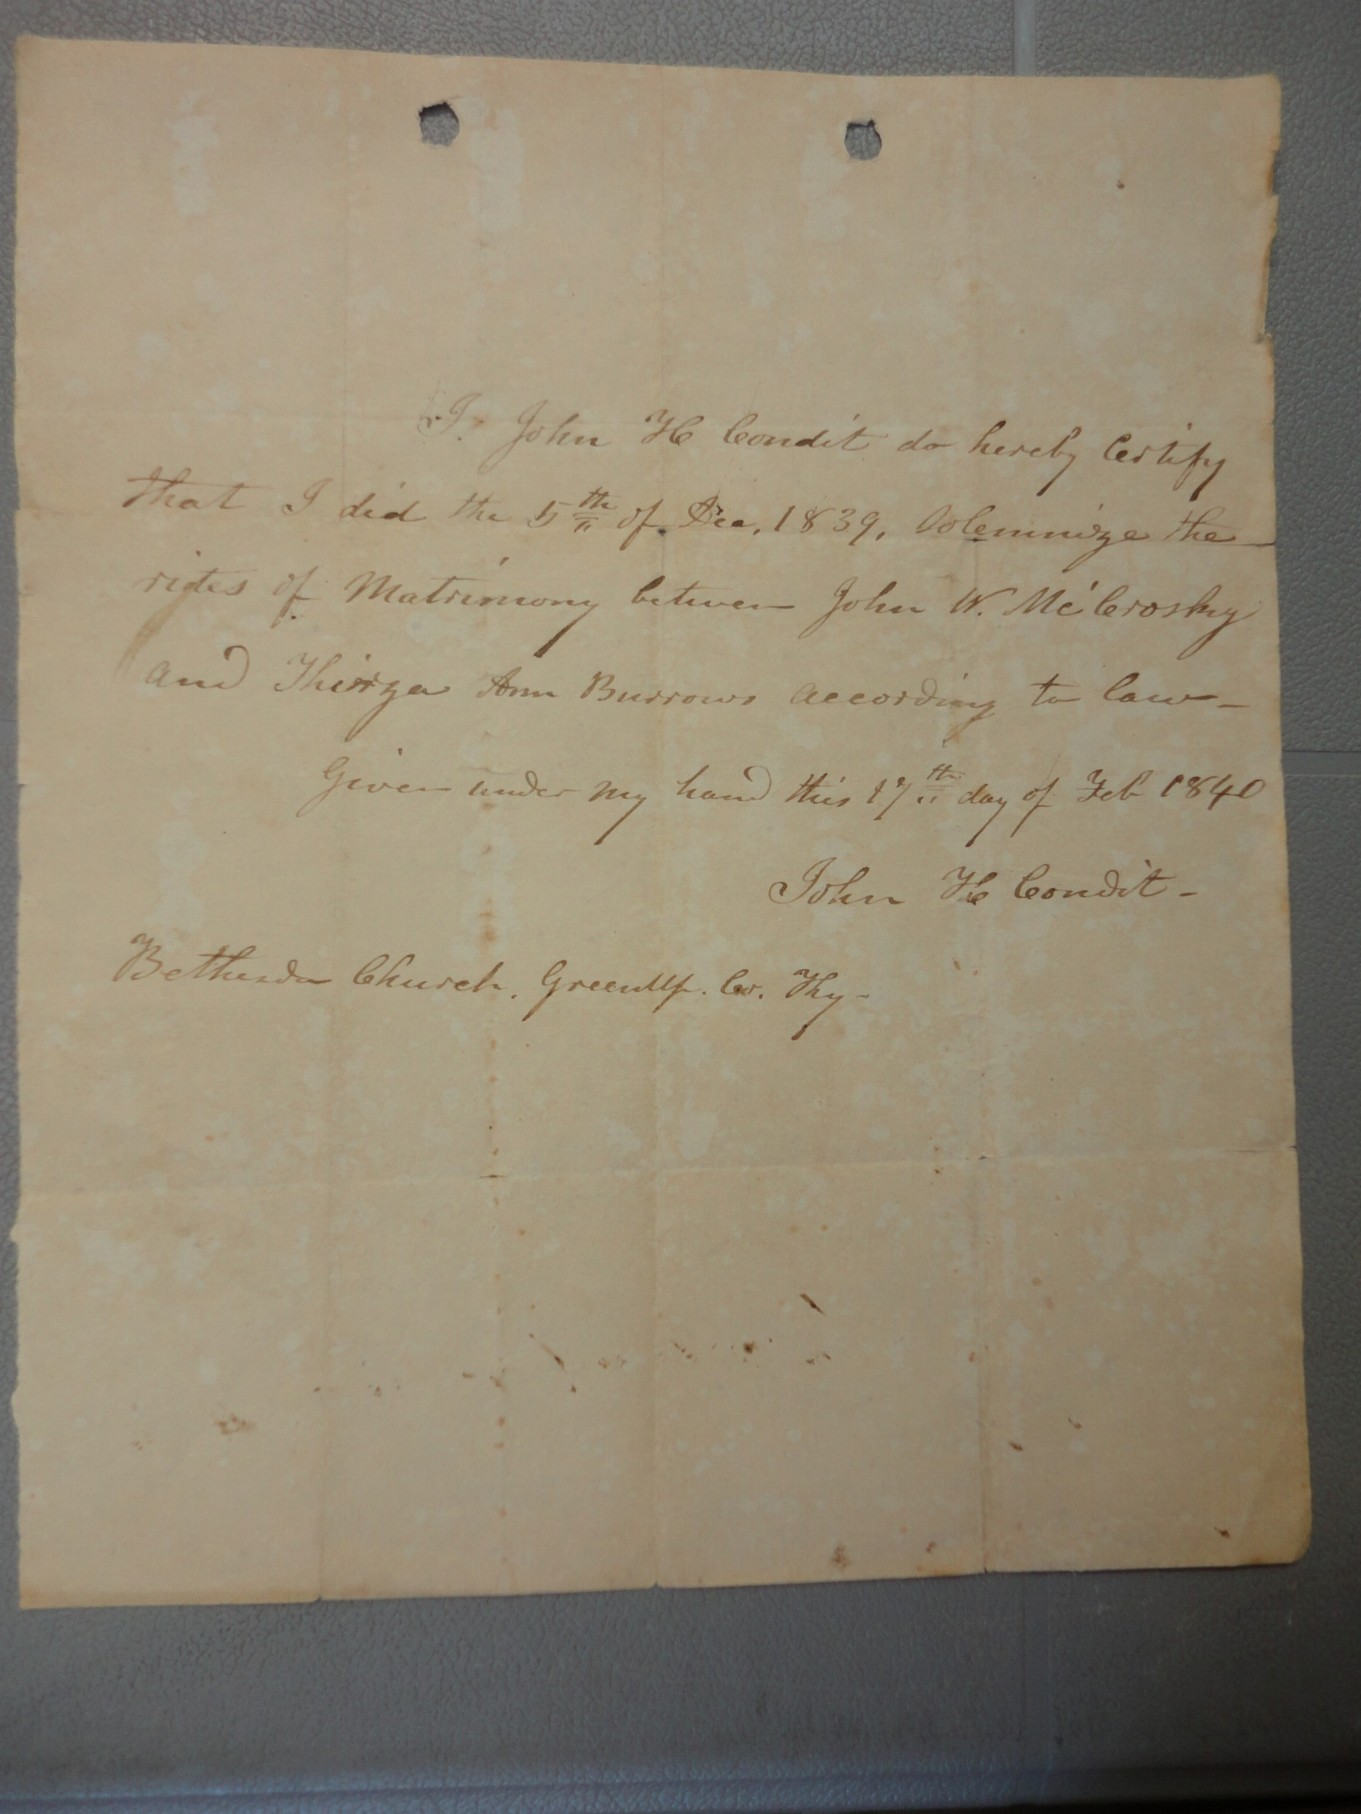 I. John H Condit do hereby Certify
that I did the 5th of Dec, 1839, Solemnize the
rites of Matrimony between John W. McCrosky
and Thirza Ann Burrows according to law—
Given under my hand this 17th day of Feb 1840
John H Condit—
Bethesda Church, Greenup. Co. Ky—